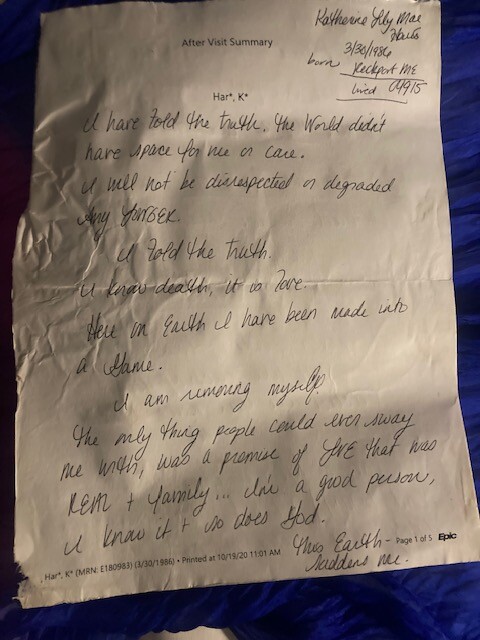 Katherine Lily Mae
3/30/1986
After Visit Summary
born Rockport ME
lived 04915
Har*, K*
I have told the truth. The World didn't
have space for me or care.
I will not be disrespected or degraded
Any LONGER.
I told the truth.
I know death, it is love.
Here on Earth I have been made into
a Game.
I am removing myself.
The only thing people could ever sway
me with, was a promise of LOVE that was
REAL + family... I'm a good person,
I know it + so does God.
This Earth -
saddens me.
Page 1 of 5 Epic
Har*, K* (MRN: E180983) (3/30/1986) • Printed at 10/19/20 11:01 AM